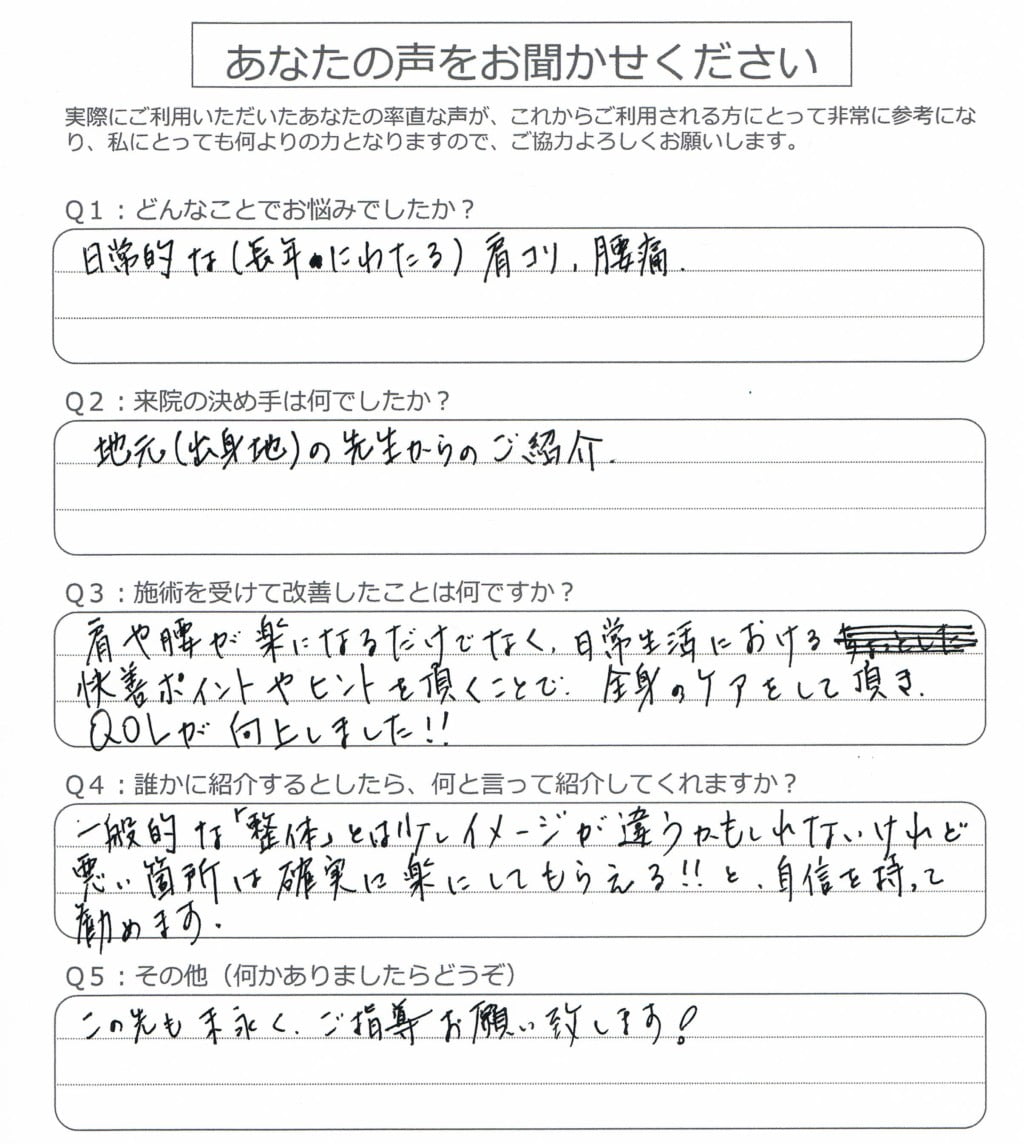 あなたの声をお聞かせください
実際にご利用いただいたあなたの率直な声が、これからご利用される方にとって非常に参考にな
り、私にとっても何よりの力となりますので、ご協力よろしくお願いします。
Q1：どんなことでお悩みでしたか？
日常的な(長年にわたる)肩コリ、腰痛.
Q2：来院の決め手は何でしたか？
地元(出身地)の先生からのご紹介.
Q3：施術を受けて改善したことは何ですか？
肩や腰が楽になるだけでなく、日常生活における
快善ポイントやヒントを頂くことで、全身のケアをして頂き、
QOLが向上しました!!
Q4：誰かに紹介するとしたら、何と言って紹介してくれますか？
一般的な「整体」とは少しイメージが違うかもしれないけれど
悪い箇所は確実に楽にしてもらえる!!と、自信を持って
勧めます.
Q5：その他（何かありましたらどうぞ）
この先も末永く、ご指導お願い致します!